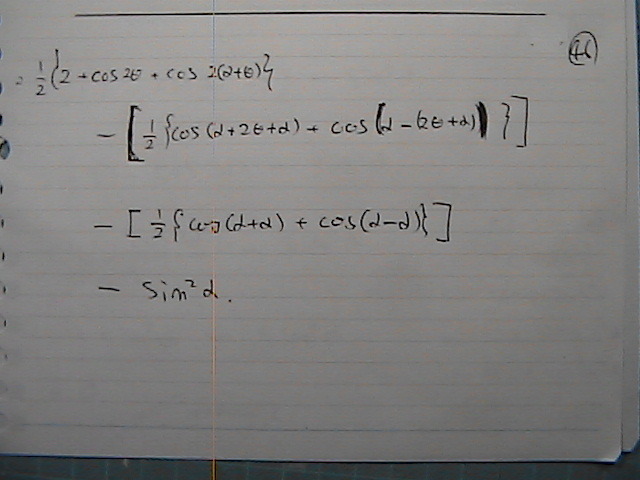 (46)
= 1/2 {2 + cos 2θ + cos 2(α+θ)}
− [ 1/2 {cos (α+2θ+α) + cos (α − (2θ+α)) } ]
− [ 1/2 { cos (α+α) + cos (α−α)} ]
− Sin²α.